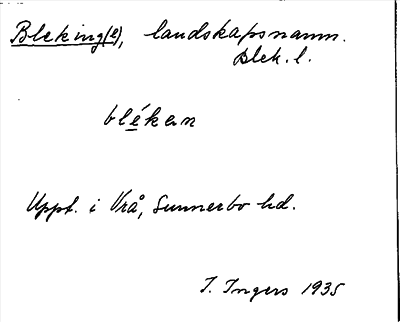 Bleking(e), landskapsnamn.
Blek. l.
blékan
Uppt. i Vrå, Sunnerbo hd.
I. Ingers 1935